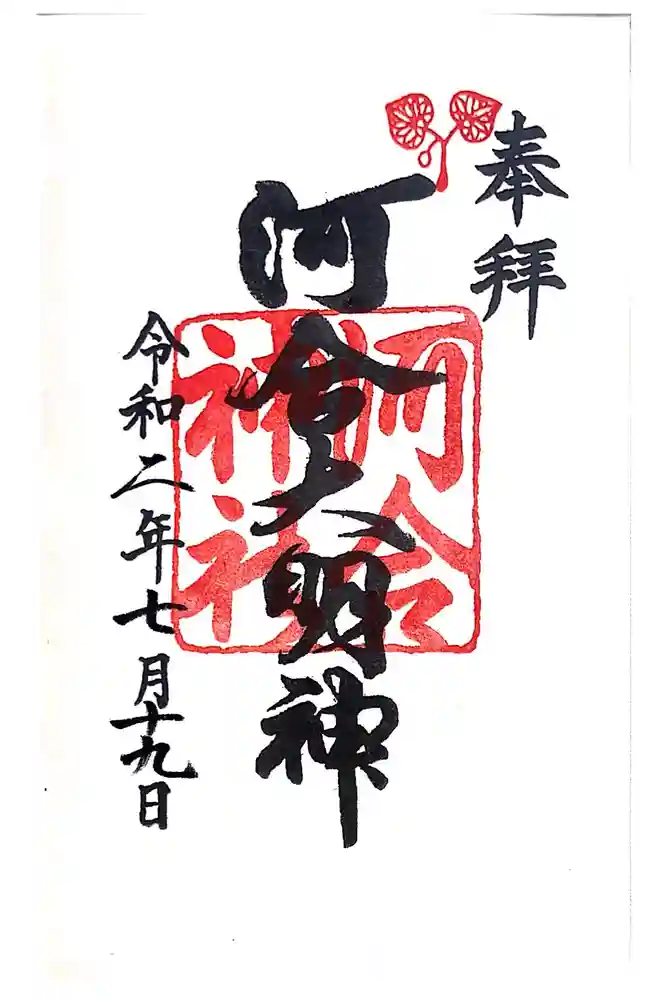 奉拝
河合大明神
河合
神社
令和二年七月十九日